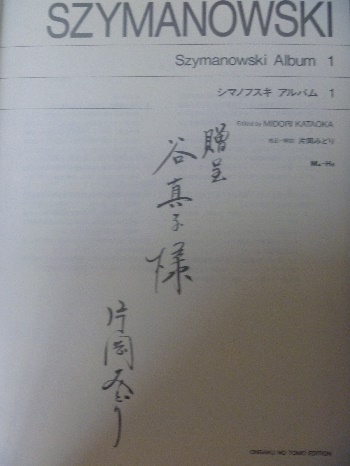 SZYMANOWSKI
Szymanowski Album 1
シマノフスキ アルバム 1
Edited by MIDORI KATAOKA
校訂・解説 片岡みどり
贈呈
谷真子様
片岡みどり
ONGAKU NO TOMO EDITION